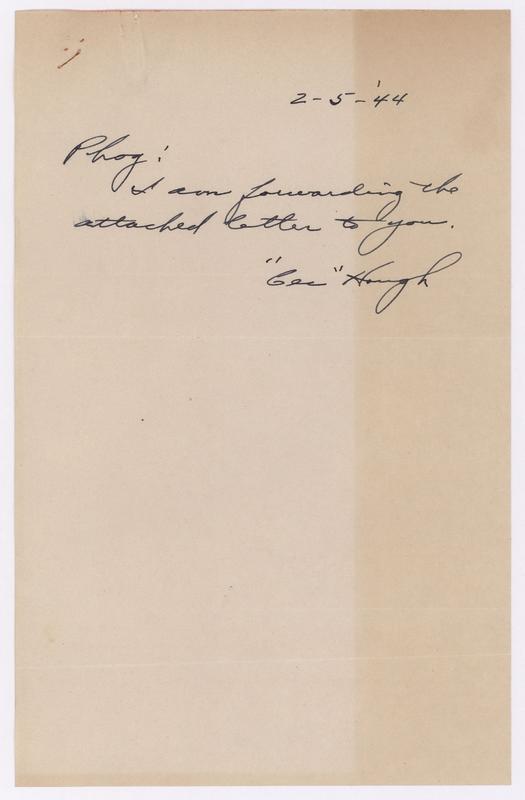 2-5-'44
Phog:
I am forwarding the
attached letter to you.
"Cec" Hough